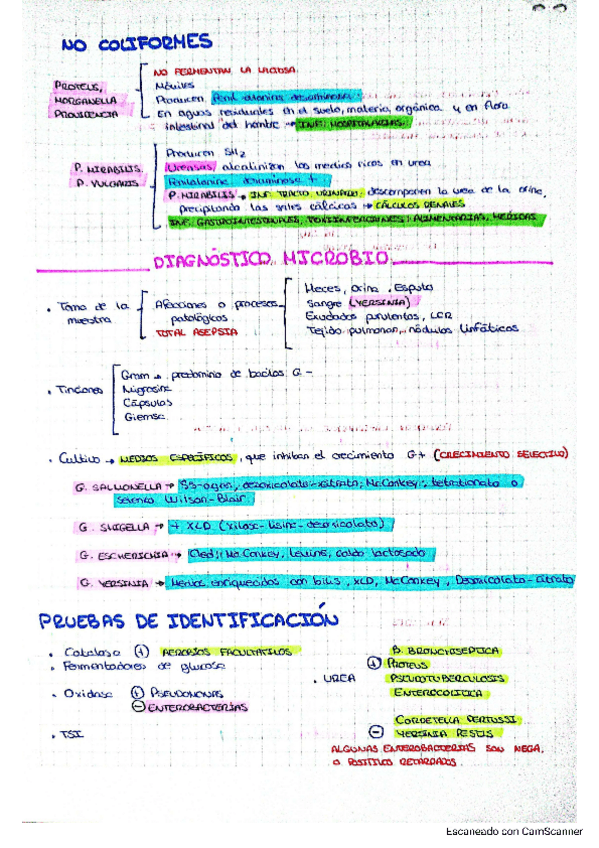 NO COLIFORMES
NO FERMENTAN LA LACTOSA
PROTEUS,
MORGANELLA
PROVIDENCIA
Móviles
Producen fenil alanina desaminasa
En aguas residuales en el suelo, materia orgánica y en flora
intestinal del hombre → INF. HOSPITALARIAS.
P. MIRABILIS
P. VULGARIS
Producen SH2
Ureasas, alcalinizan los medios ricos en urea
Fenilalanina desaminasa +
P. MIRABILIS → INF. TRACTO URINARIO: descomponen la urea de la orina,
precipitando las sales cálcicas → CÁLCULOS RENALES
INF. GASTROINTESTINALES, TOXIINFECCIONES ALIMENTARIAS,
DIAGNÓSTICO MICROBIO
• Toma de la
muestra
Afecciones o procesos
patológicos
TOTAL ASEPSIA
Heces, orina, Esputo
Sangre (YERSINIA)
Exudados purulentos, LCR
Tejido pulmonar, nódulos linfáticos
• Tinciones
Gram → predominio de bacilos G -
Nigrosina
Cápsulas
Giemsa
• Cultivo → MEDIOS ESPECÍFICOS, que inhiban el crecimiento G+ (CRECIMIENTO SELECTIVO)
G. SALMONELLA → SS-agar, desoxicolato-citrato; McConkey; tetrationato o
Selenito Wilson-Blair
G. SHIGELLA → + XLD (xilosa-lisina-desoxicolato)
G. ESCHERICHIA → Cled; McConkey, Levine, caldo lactosado
G. YERSINIA → Medios enriquecidos con bilis, XLD, McConkey, Desoxicolato-citrato
PRUEBAS DE IDENTIFICACIÓN
• Catalasa (+) AEROBIOS FACULTATIVOS
• Fermentadores de glucosa
• Oxidasa (+) PSEUDOMONAS
(-) ENTEROBACTERIAS
• TSI
• UREA
B. BRONCHISEPTICA
(+) PROTEUS
PSEUDOTUBERCULOSIS
ENTEROCOLITICA
CORDETELLA PERTUSSI
(-) YERSINIA PESTIS
ALGUNAS ENTEROBACTERIAS SON NEGA.
O POSITIVO RETARDADOS
Escaneado con CamScanner